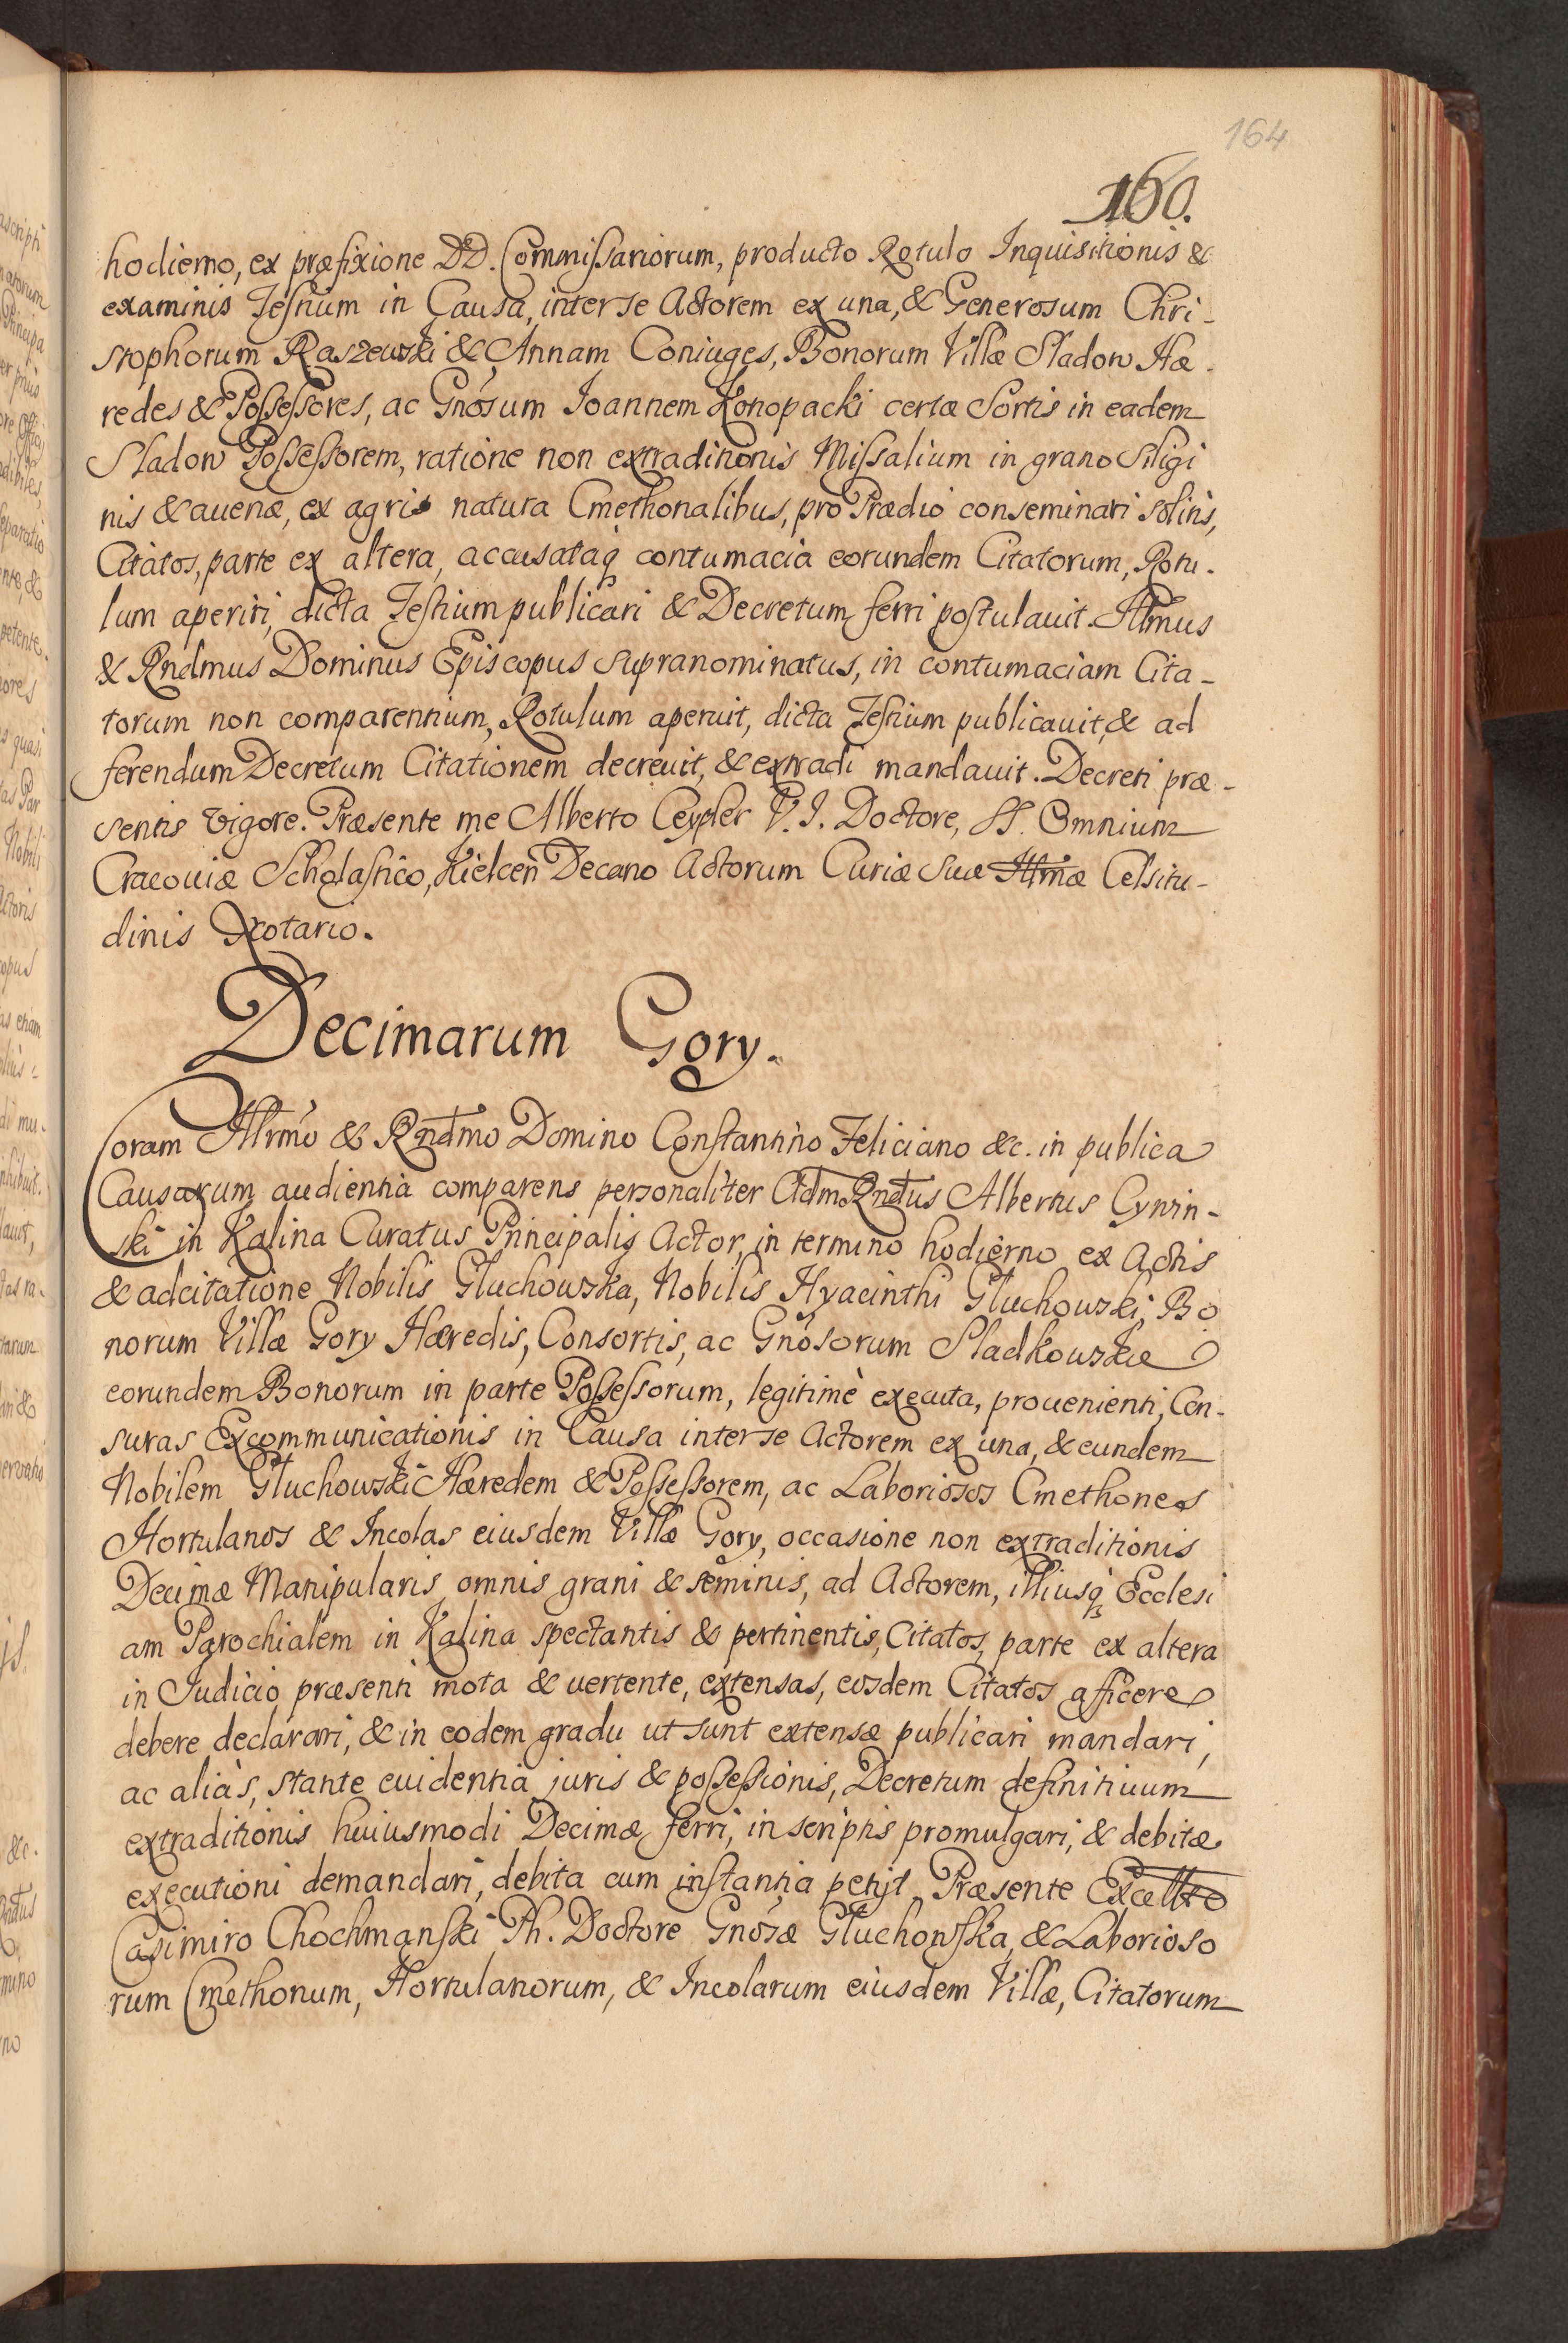 164
160.
hodierno, ex præfixione DD. Commissariorum, producto Rotulo Inquisitionis &
examinis Testium in Causa, inter se Actorem ex una, & Generosum Chri-
stophorum Raszewski & Annam Coniuges, Bonorum Villæ Sladow Hæ-
redes & Possessores, ac Gnosum Ioannem Konopacki certæ Sortis in eadem
Sladow Possessorem, ratione non extraditionis Missalium in grano Siligi
nis & auenæ, ex agris natura Cmethonalibus, pro Prædio conseminari solitis,
Citatos, parte ex altera, accusataq contumacia eorundem Citatorum, Rotu-
lum aperiri, dicta Testium publicari & Decretum ferri postulauit. Illmus
& Rndmus Dominus Episcopus supranominatus, in contumaciam Cita-
torum non comparentium, Rotulum aperuit, dicta Testium publicauit, & ad
ferendum Decretum Citationem decreuit, & extradi mandauit. Decreti præ-
sentis vigore. Præsente me Alberto Ceypler V. I. Doctore, SS. Omnium
Cracouiæ Scholastico, Kielceñ Decano Actorum Curiæ Suæ Illmæ Celsitu-
dinis Notario.
Decimarum Gory.
Coram Illrmo & Rndmo Domino Constantino Feliciano &c. in publica
Causarum audientia comparens personaliter Adm Rndus Albertus Cynin-
ski in Kalina Curatus Principalis Actor, in termino hodierno ex Actis
& adcitatione Nobilis Głuchowska, Nobilis Hyacinthi Głuchowski, Bo
norum Villæ Gory Hæredis, Consortis, ac Gnosorum Sladkowskie
eorundem Bonorum in parte Possessorum, legitimè executa, prouenienti, Cen-
suras Excommunicationis in Causa inter se Actorem ex una, & eundem
Nobilem Głuchowski Hæredem & Possessorem, ac Laboriosos Cmethones
Hortulanos & Incolas eiusdem Villæ Gory, occasione non extraditionis
Decimæ Manipularis omnis grani & seminis, ad Actorem, illiusq Ecclesi
am Parochialem in Kalina spectantis & pertinentis, Citatos, parte ex altera
in Iudicio præsenti mota & uertente, extensas, eosdem Citatos afficere
debere declarari, & in eodem gradu ut sunt extensæ publicari mandari,
ac aliàs, stante euidentia juris & possessionis, Decretum definitiuum
extraditionis huiusmodi Decimæ ferri, in scriptis promulgari, & debitæ
executioni demandari, debita cum instantia petijt. Præsente Excellto
Casimiro Chochmanski Ph. Doctore Gnosæ Głuchowska, & Laborioso
rum Cmethonum, Hortulanorum, & Incolarum eiusdem Villæ, Citatorum